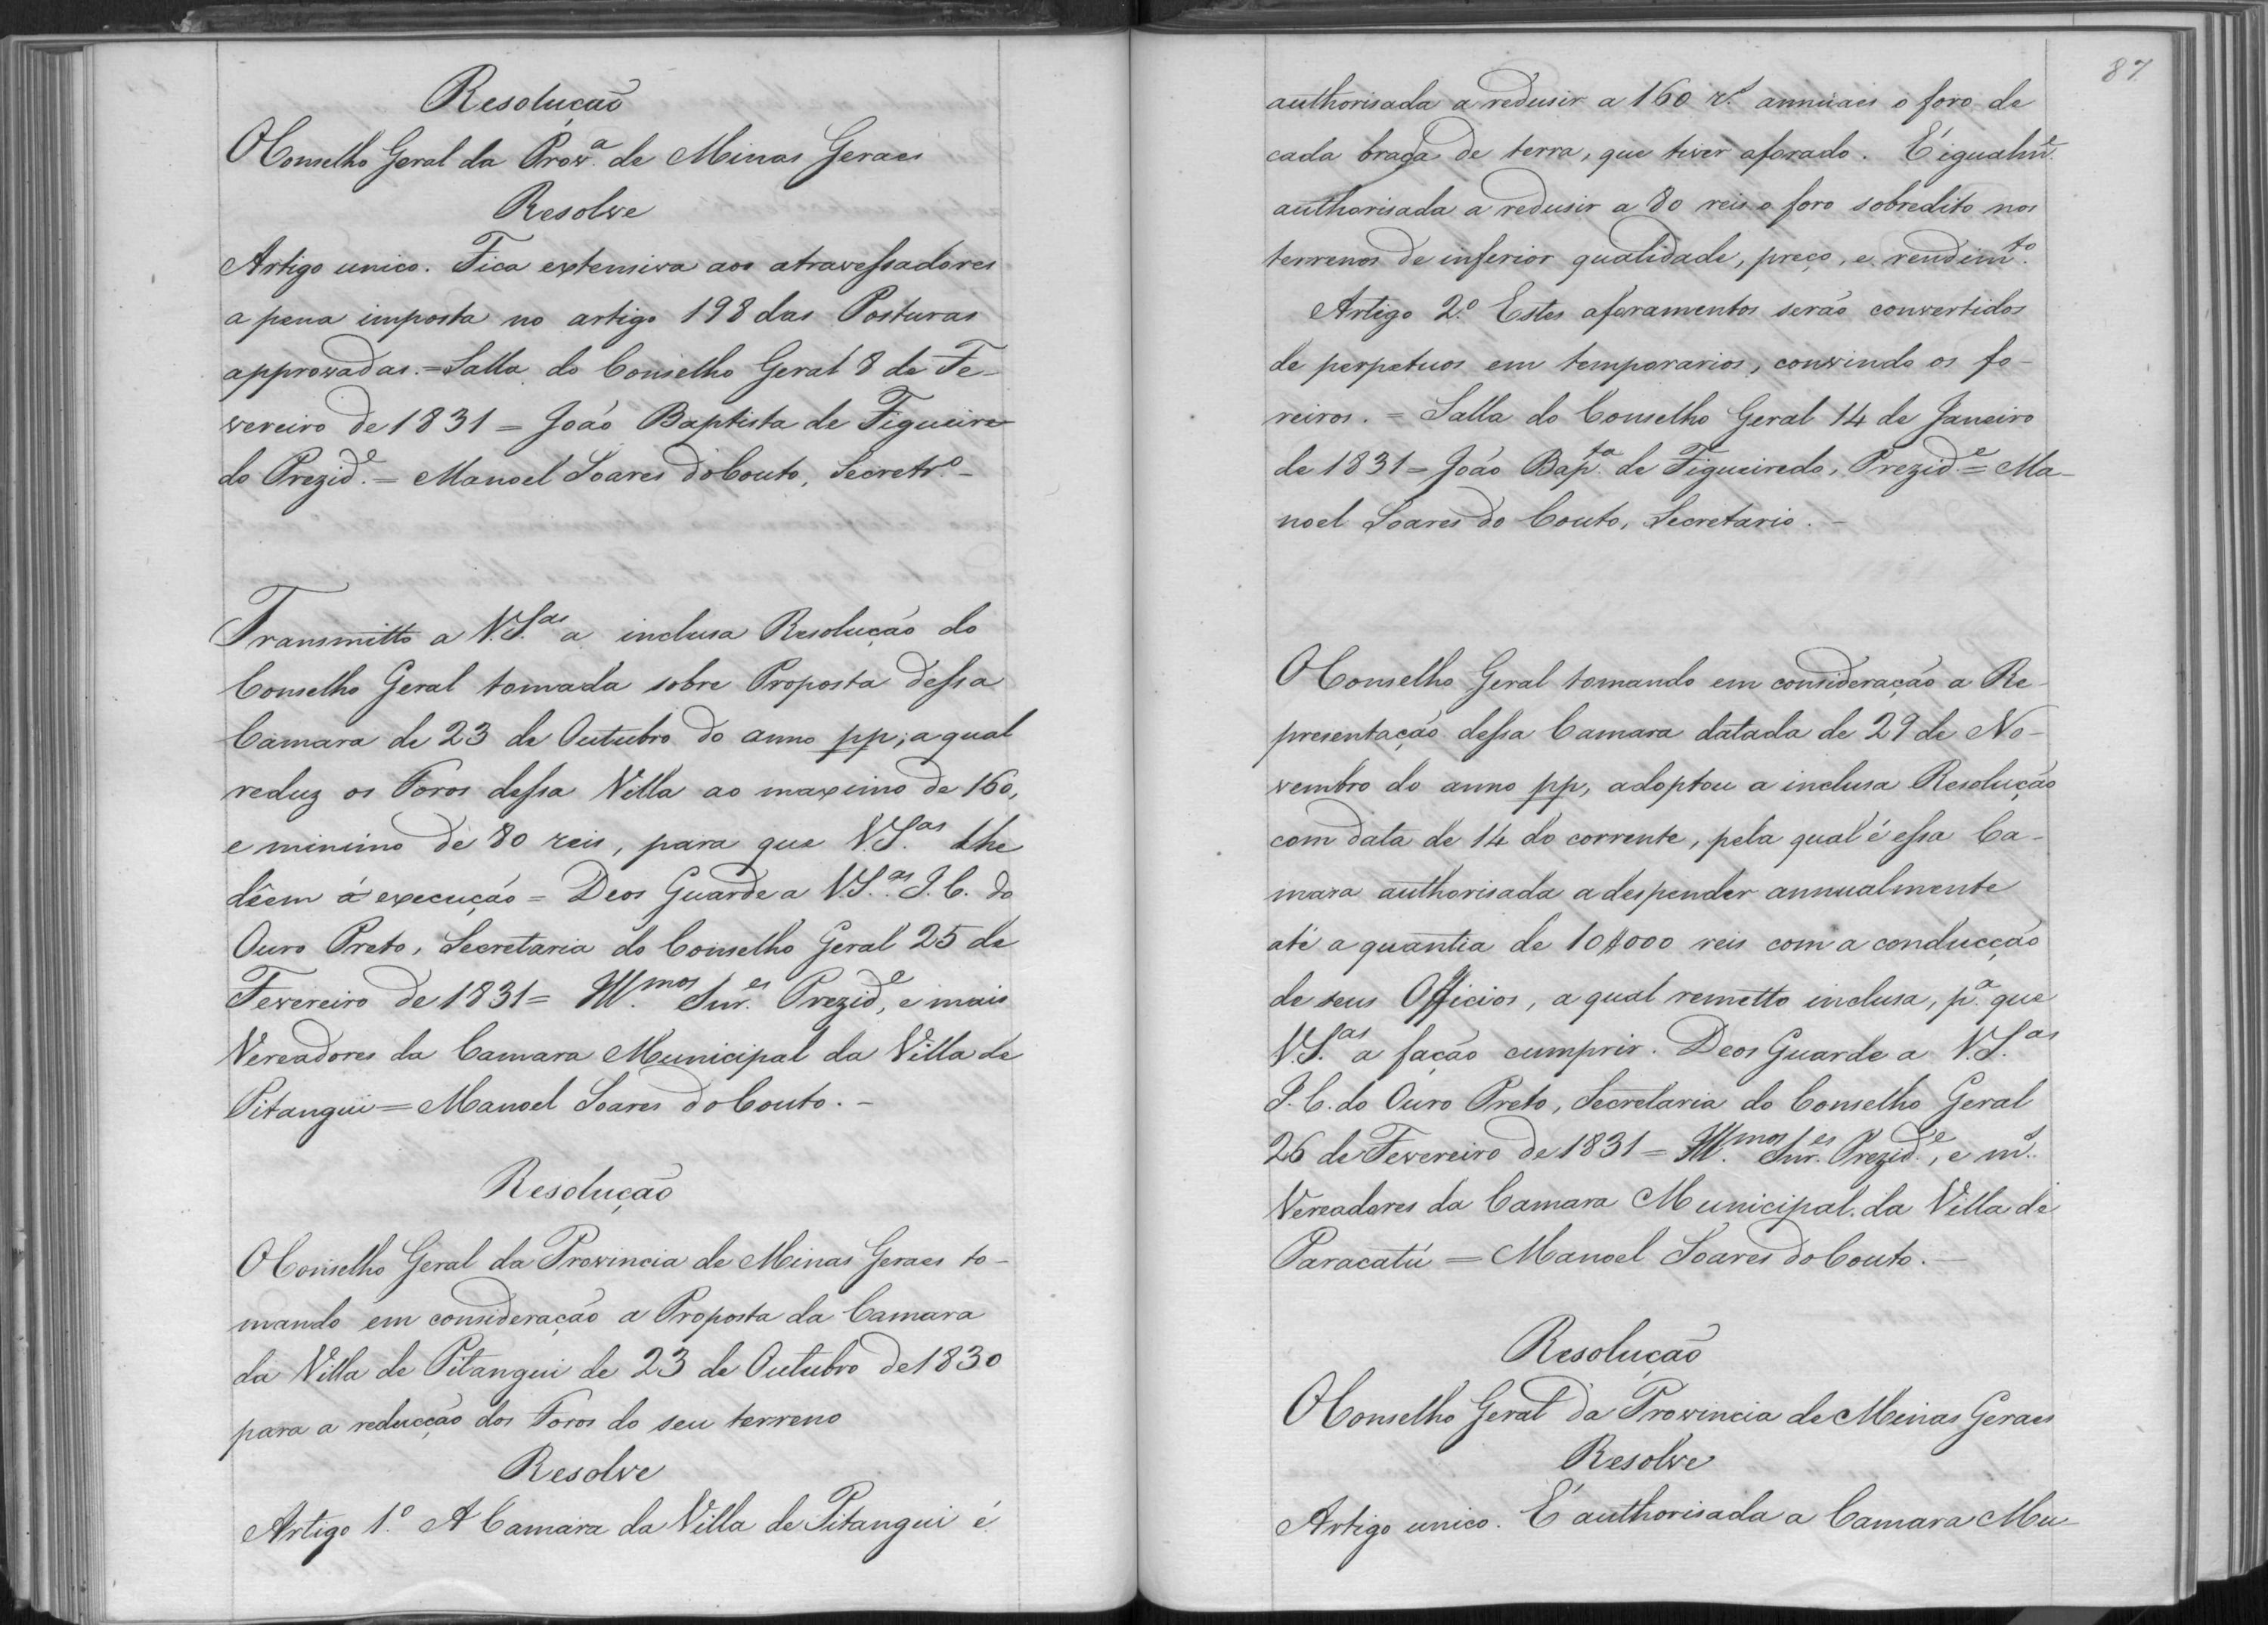 Resolução
O Conselho Geral da Prov.ª de Minas Geraes
Resolve
Artigo unico. Fica extensiva aos atravessadores
a pena imposta no artigo 198 das Posturas
approvadas. = Salla do Conselho Geral 8 de Fe-
vereiro de 1831 = João Baptista de Figueire-
do Prezid.e = Manoel Soares do Couto, Secretr.º -
Transmitto a V.S.as a inclusa Resolução do
Conselho Geral tomada sobre Proposta dessa
Camara de 23 de Outubro do anno pp; a qual
reduz os Foros dessa Villa ao maximo de 160,
e minimo de 80 reis, para que V.S.as lhe
dêem á execução = Deos Guarde a V.S.as I.C. do
Ouro Preto, Secretaria do Conselho Geral 25 de
Fevereiro de 1831 = Ill.mos Snr.es Prezid.e, e mais
Vereadores da Camara Municipal da Villa de
Pitangui = Manoel Soares do Couto. -
Resolução
O Conselho Geral da Provincia de Minas Geraes to-
mando em consideração a Proposta da Camara
da Villa de Pitangui de 23 de Outubro de 1830
para a reducção dos Foros do seu terreno
Resolve
Artigo 1.º A Camara da Villa de Pitangui é
87
authorisada a redusir a 160 r.s annuaes o foro de
cada braça de terra, que tiver aforado. É igualm.e
authorisada a redusir a 80 reis o foro sobredito nos
terrenos de inferior qualidade, preço, e rendim.to
Artigo 2.º Estes aforamentos serão convertidos
de perpetuos em temporarios, convindo os fo-
reiros. = Salla do Conselho Geral 14 de Janeiro
de 1831 = João Bap.ta de Figueiredo, Prezid.e = Ma-
noel Soares do Couto, Secretario. -
O Conselho Geral tomando em consideração a Re-
presentação dessa Camara datada de 29 de No-
vembro do anno pp, adoptou a inclusa Resolução
com data de 14 do corrente, pela qual é essa Ca-
mara authorisada a despender annualmente
até a quantia de 10$000 reis com a conducção
de seus Officios, a qual remetto inclusa, p.ª que
V.S.as a fação cumprir. Deos Guarde a V.S.as
I.C. do Ouro Preto, Secretaria do Conselho Geral
26 de Fevereiro de 1831 = Ill.mos Snr.es Prezid.e, e m.s
Vereadores da Camara Municipal da Villa de
Paracatú = Manoel Soares do Couto. -
Resolução
O Conselho Geral da Provincia de Minas Geraes
Resolve
Artigo unico. É authorisada a Camara Mu-